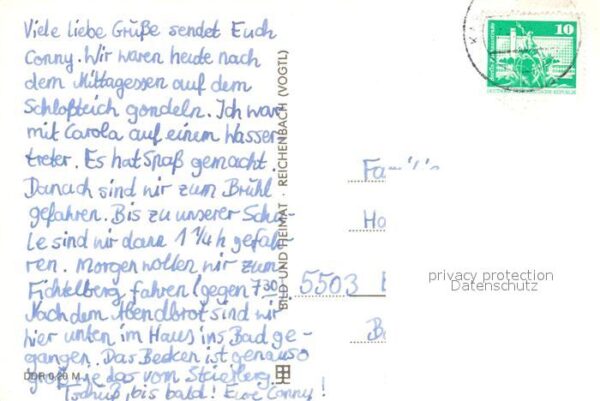 Viele liebe Grüße sendet Euch
Conny. Wir waren heute nach
dem Mittagessen auf dem
Schloßteich gondeln. Ich war
mit Carola auf einem Wasser
treter. Es hat Spaß gemacht.
Danach sind wir zum Brühl
gefahren. Bis zu unserer Schu-
le sind wir dann 1 1/4 h gefah-
ren. Morgen wollen wir zum
Fichtelberg fahren (gegen 7.30).
Nach dem Abendbrot sind wir
hier unten im Haus ins Bad ge-
gangen. Das Becken ist genauso
groß wie das vom
Tschüß, bis bald! Eure Conny!
DDR 0,20 M
BILD UND HEIMAT · REICHENBACH (VOGTL)
10
Fa
Ho
5503
privacy protection
Datenschutz